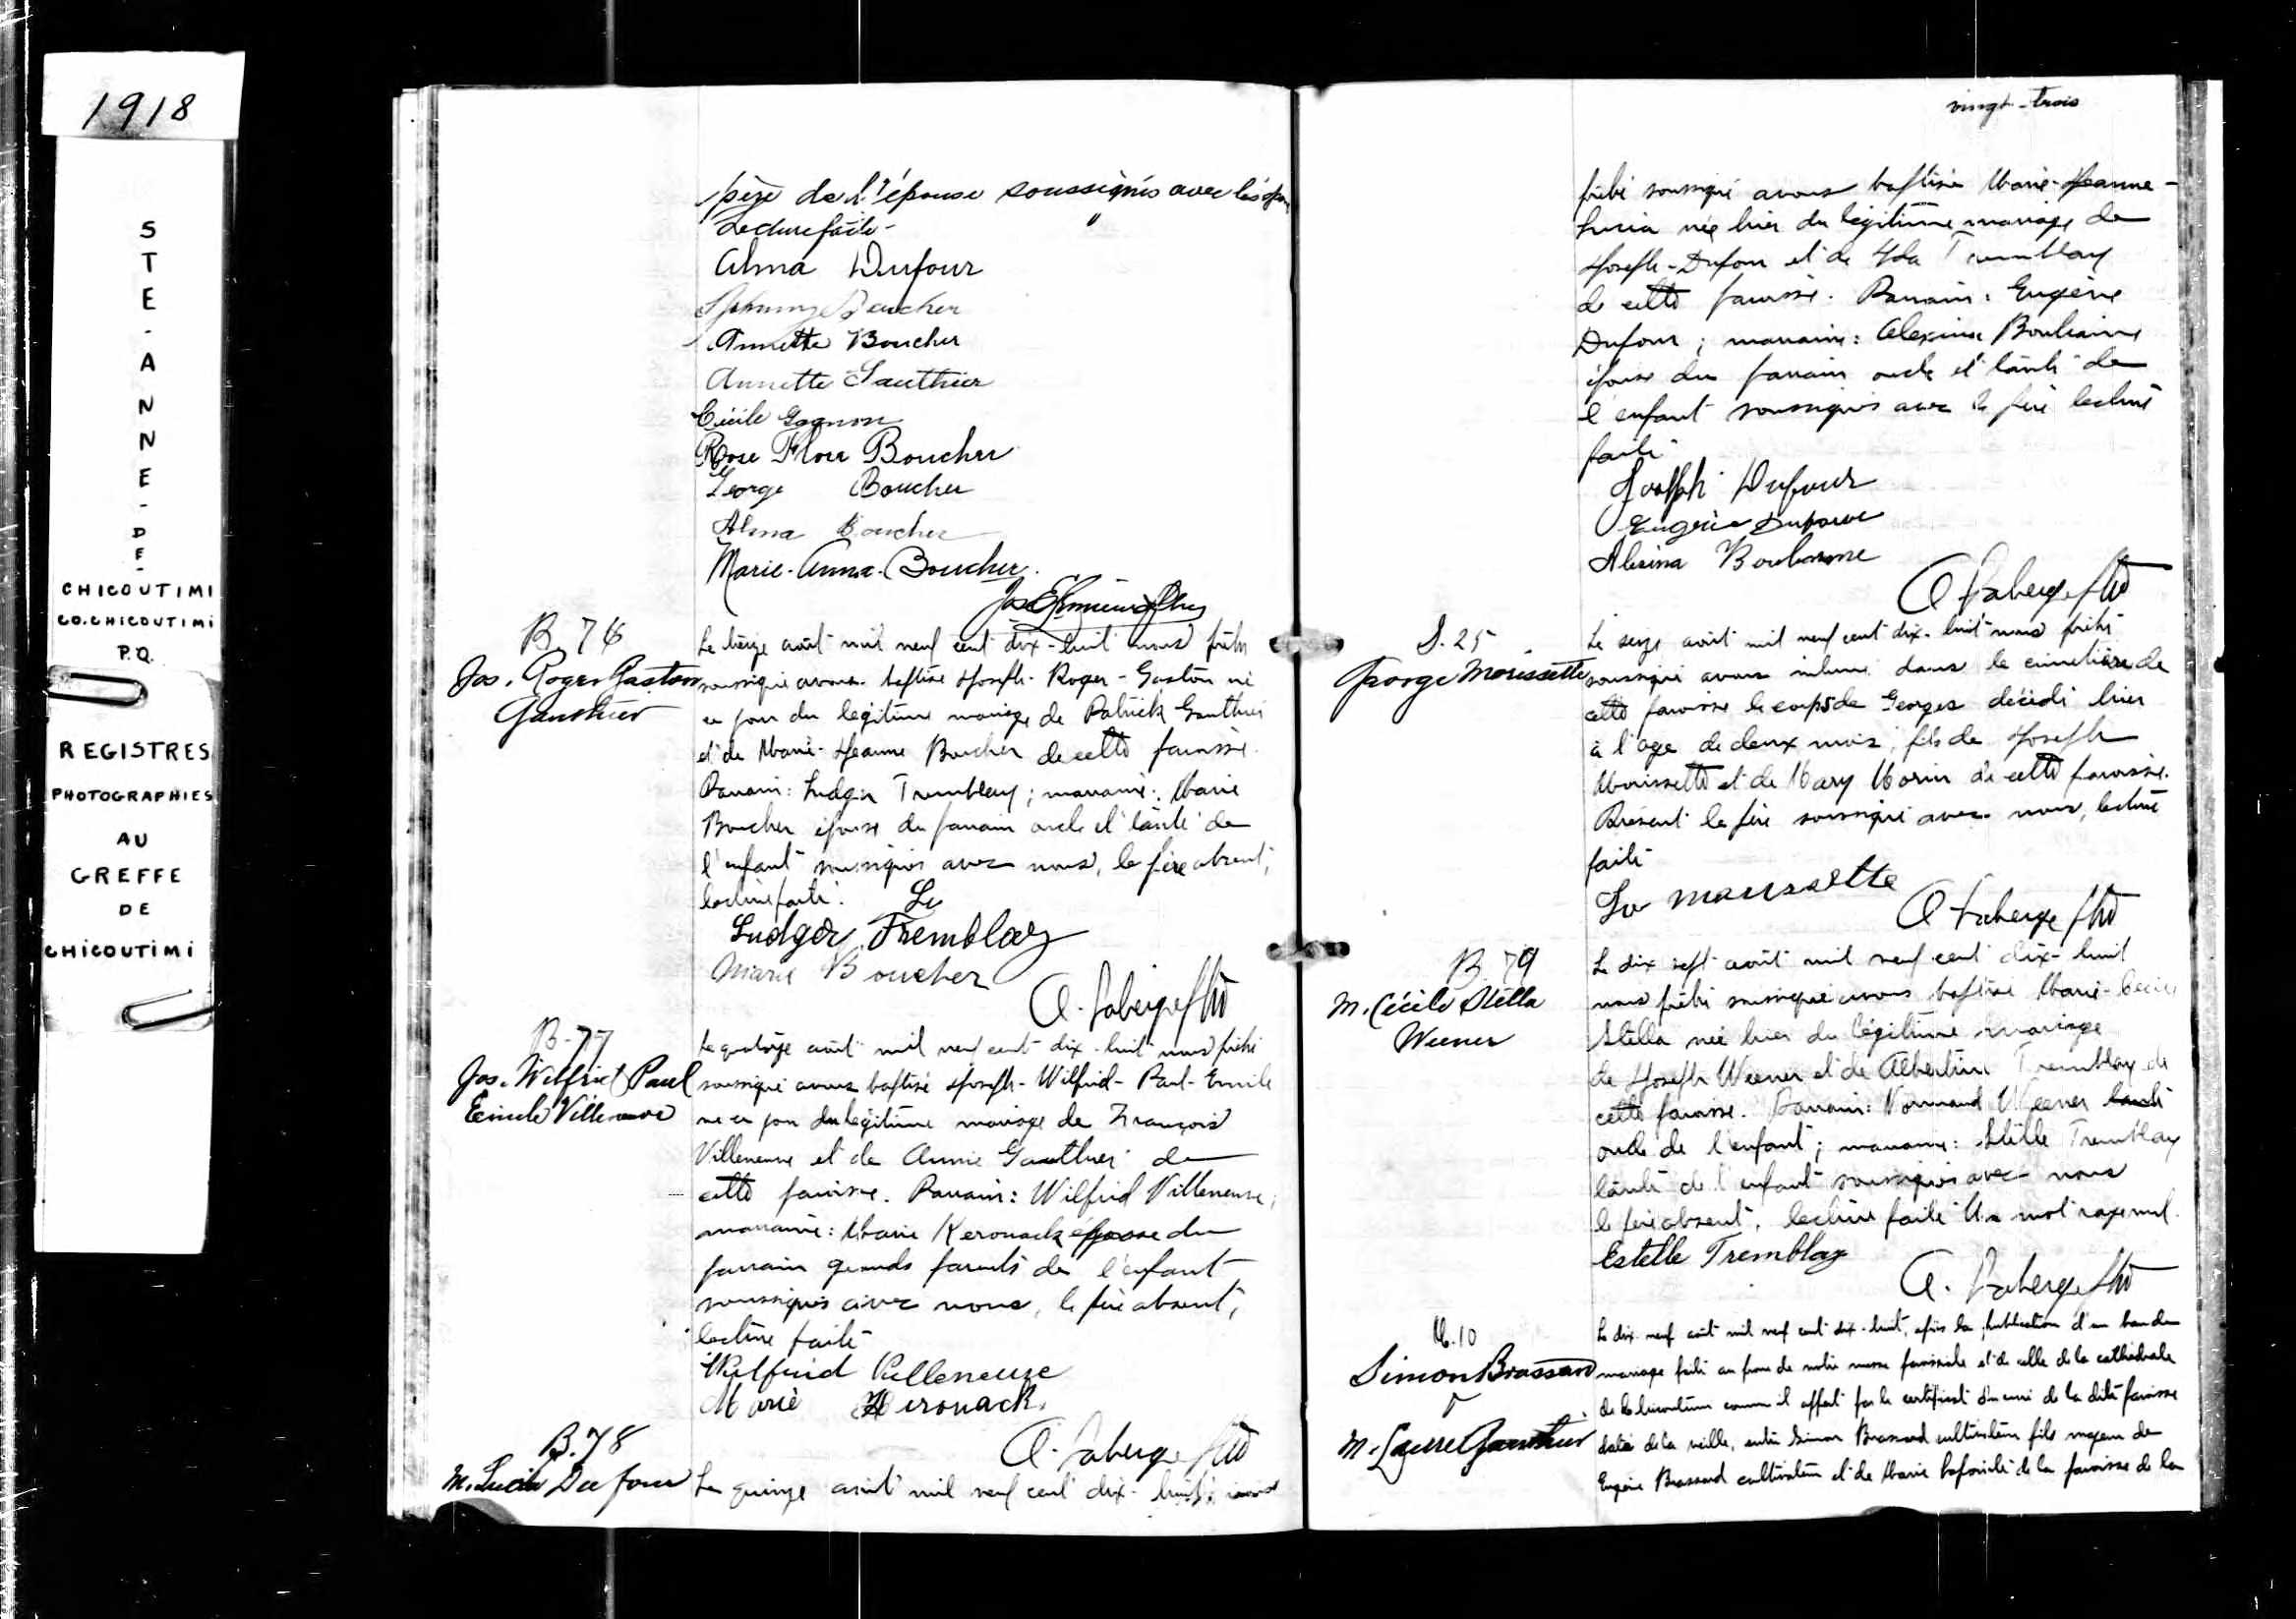 1918
STE-ANNE-DE-
CHICOUTIMI
CO. CHICOUTIMI
P.Q.
REGISTRES
PHOTOGRAPHIES
AU
GREFFE
DE
CHICOUTIMI
père de l'épouse soussignés avec les
Lecture faite-
Alma Dufour
Boucher
Annette Boucher
Annette Gauthier
Cécile Gagnon
Rose Flore Boucher
George Boucher
Alma Boucher
Marie-Anna-Boucher.
B. 76
Jos. Roger Gaston
Gauthier
Le treize août mil neuf cent dix-huit nous prêtre
soussigné avons baptisé Joseph-Roger-Gaston né
ce jour du légitime mariage de Patrick Gauthier
et de Marie-Jeanne Boucher de cette paroisse.
Parrain: Ludger Tremblay; marraine: Marie
Boucher épouse du parrain oncle et tante de
l'enfant soussignés avec nous, le père absent,
lecture faite. Lu
Ludger Tremblay
Marie Boucher
B-77
Jos. Wilfrid Paul
Emile Villeneuve
Le quatorze août mil neuf cent dix-huit nous prêtre
soussigné avons baptisé Joseph-Wilfrid-Paul-Emile
né ce jour du légitime mariage de François
Villeneuve et de Annie Gauthier de
cette paroisse. Parrain: Wilfrid Villeneuve;
marraine: Marie Kerouack épouse du
parrain grands parents de l'enfant
soussignés avec nous, le père absent,
lecture faite
Wilfrid Villeneuve
Marie Kerouack.
A. Laberge Ptre
B. 78
M. Lucia Dufour
Le quinze août mil neuf cent dix-huit, nous
vingt-trois
prêtre soussigné avons baptisé Marie-Jeanne-
Lucia née hier du légitime mariage de
Joseph-Dufour et de Ida Tremblay
de cette paroisse. Parrain: Eugène
Dufour; marraine: Alexina Boulianne
épouse du parrain oncle et tante de
l'enfant soussignés avec le père lecture
faite
Joseph Dufour
Eugène Dufour
Alexina Boulianne
A Laberge Ptre
S. 25
George Morissette
Le seize août mil neuf cent dix-huit nous prêtre
soussigné avons inhumé dans le cimetière de
cette paroisse le corps de Georges décédé hier
à l'age de deux mois, fils de Joseph
Morissette et de Mary Morin de cette paroisse.
Présent le père soussigné avec nous, lecture
faite
A Laberge Ptre
B. 79
M. Cécile Stella
Weener
Le dix sept août mil neuf cent dix-huit
nous prêtre soussigné avons baptisé Marie-Cécile
Stella née hier du légitime mariage
de Joseph Weener et de Albertine Tremblay de
cette paroisse. Parrain: Normand Weener tante
oncle de l'enfant; marraine: Stella Tremblay
tante de l'enfant soussignés avec nous
le père absent, lecture faite Un mot rayé nul.
Estelle Tremblay
A. Laberge Ptre
M. 10
Simon Brassard
&
M. Laure Gauthier
Le dix neuf août mil neuf cent dix-huit, après la publication d'un ban de
mariage faite au prône de notre messe paroissiale et de celle de la cathédrale
de Chicoutimi comme il appert par le certificat du curé de la dite paroisse
daté de la veille, entre Simon Brassard cultivateur fils majeur de
Eugène Brassard cultivateur et de Marie Lafontaine de la paroisse de la